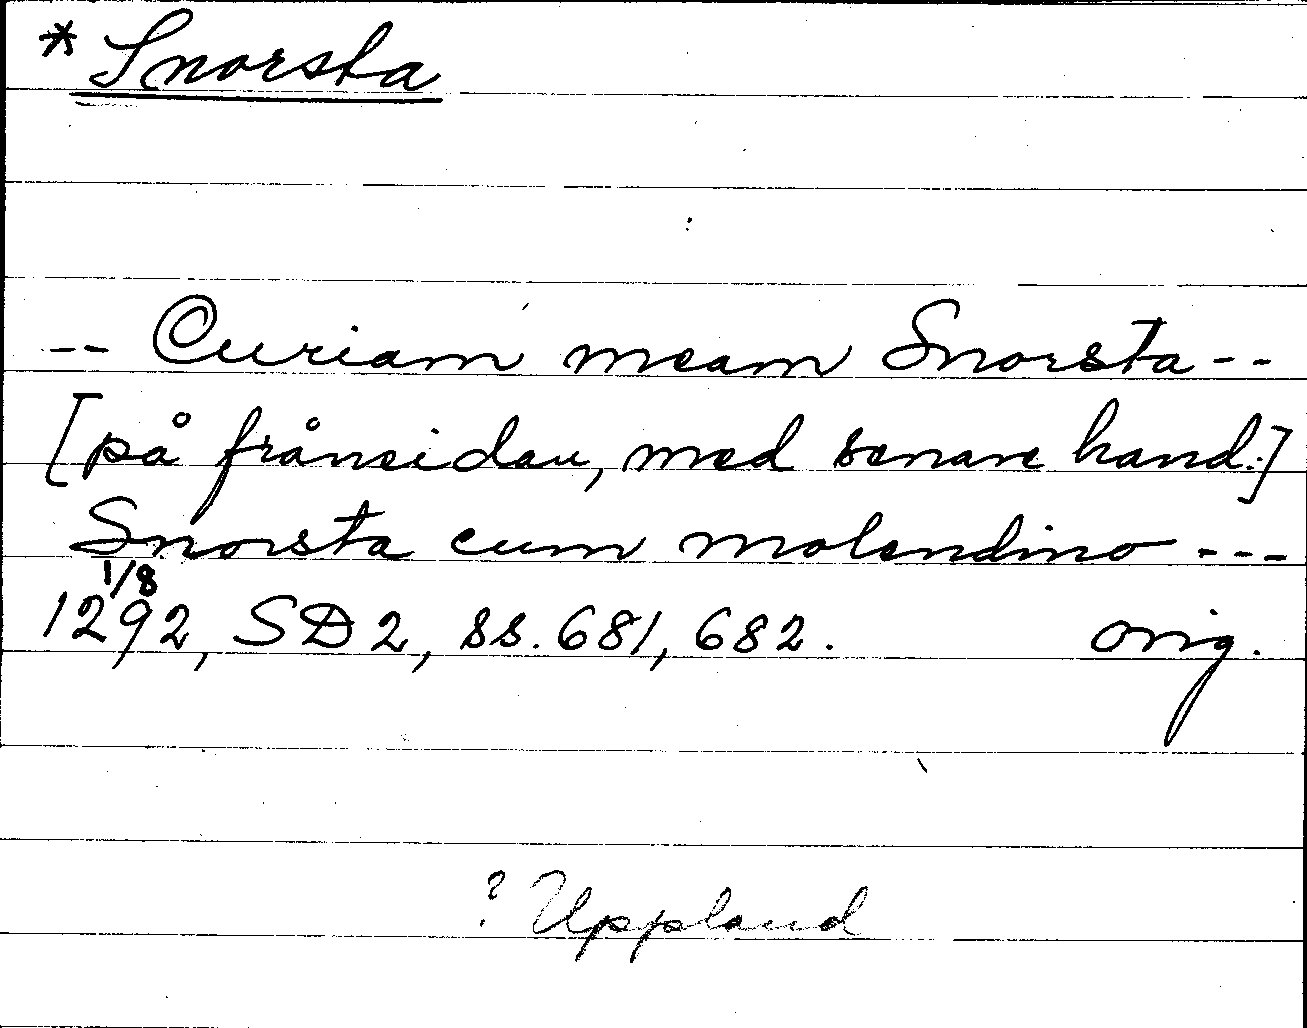 * Snorsta
-- Curiam meam Snorsta --
[på frånsidan, med senare hand:]
Snorsta cum molendino ---
1/8
1292, SD 2, ss. 681, 682. orig.
? Uppland